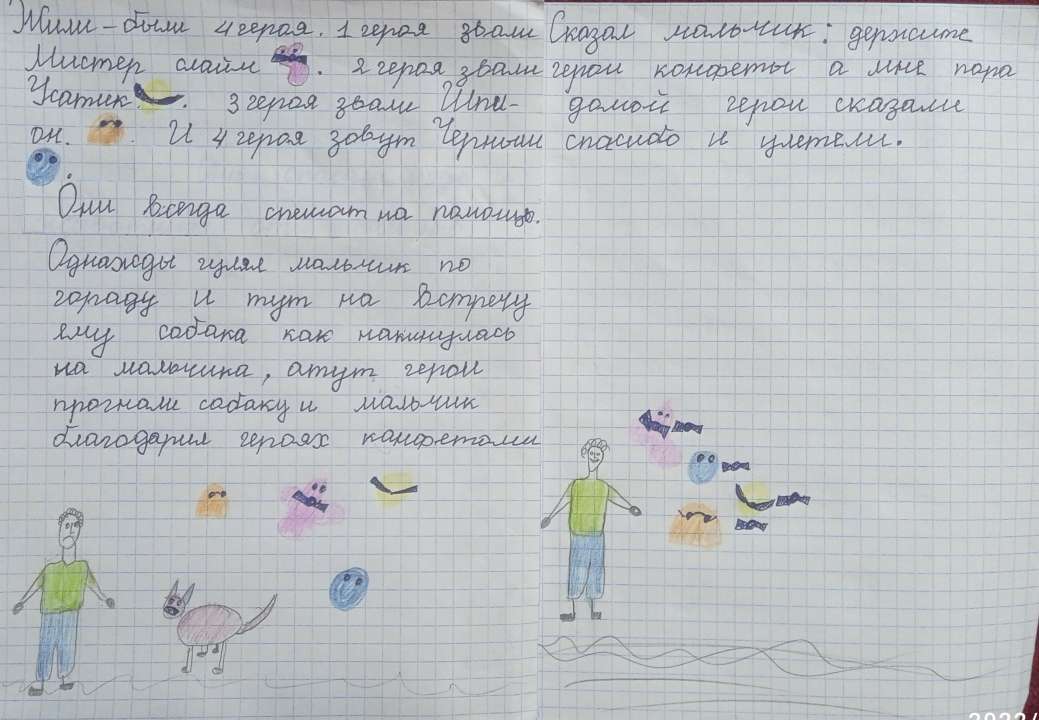 Жили-были 4 героя. 1 героя звали
Мистер слайм . 2 героя звали
Усатик. . 3 героя звали Шпи-
он. . И 4 героя зовут Черныш
.
Они всегда спешат на помощь.
Однажды гулял мальчик по
гораду и тут на встречу
яму сабака как накинулась
на мальчика, атут герои
прогнали сабаку и мальчик
благодарил героях канфетами
Сказал мальчик: держите
герои конфеты а мне пора
домой герои сказали
спасибо и улетели.